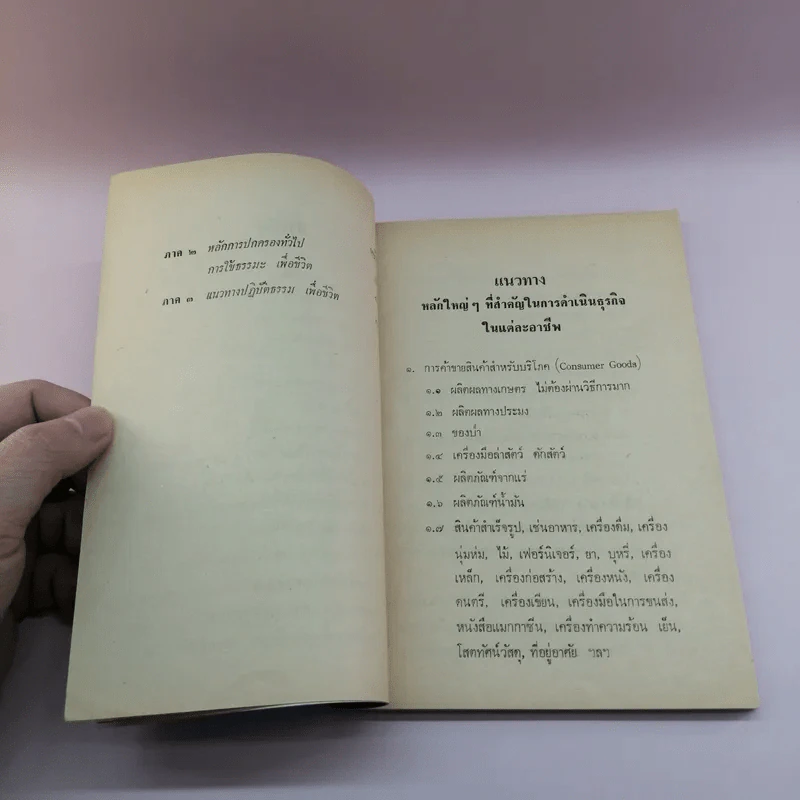 ภาค ๒ หลักการปกครองทั่วไป
การใช้ธรรมะ เพื่อชีวิต
ภาค ๓ แนวทางปฏิบัติธรรม เพื่อชีวิต
แนวทาง
หลักใหญ่ ๆ ที่สำคัญในการดำเนินธุรกิจ
ในแต่ละอาชีพ
๑. การค้าขายสินค้าสำหรับบริโภค (Consumer Goods)
๑.๑ ผลิตผลทางเกษตร ไม่ต้องผ่านวิธีการมาก
๑.๒ ผลิตผลทางประมง
๑.๓ ของป่า
๑.๔ เครื่องมือล่าสัตว์ ดักสัตว์
๑.๕ ผลิตภัณฑ์จากแร่
๑.๖ ผลิตภัณฑ์น้ำมัน
๑.๗ สินค้าสำเร็จรูป, เช่นอาหาร, เครื่องดื่ม, เครื่อง
นุ่มห่ม, ไม้, เฟอร์นิเจอร์, ยา, บุหรี่, เครื่อง
เหล็ก, เครื่องก่อสร้าง, เครื่องหนัง, เครื่อง
ดนตรี, เครื่องเขียน, เครื่องมือในการขนส่ง,
หนังสือแมกกาซีน, เครื่องทำความร้อน เย็น,
โสตทัศน์วัสดุ, ที่อยู่อาศัย ฯลฯ